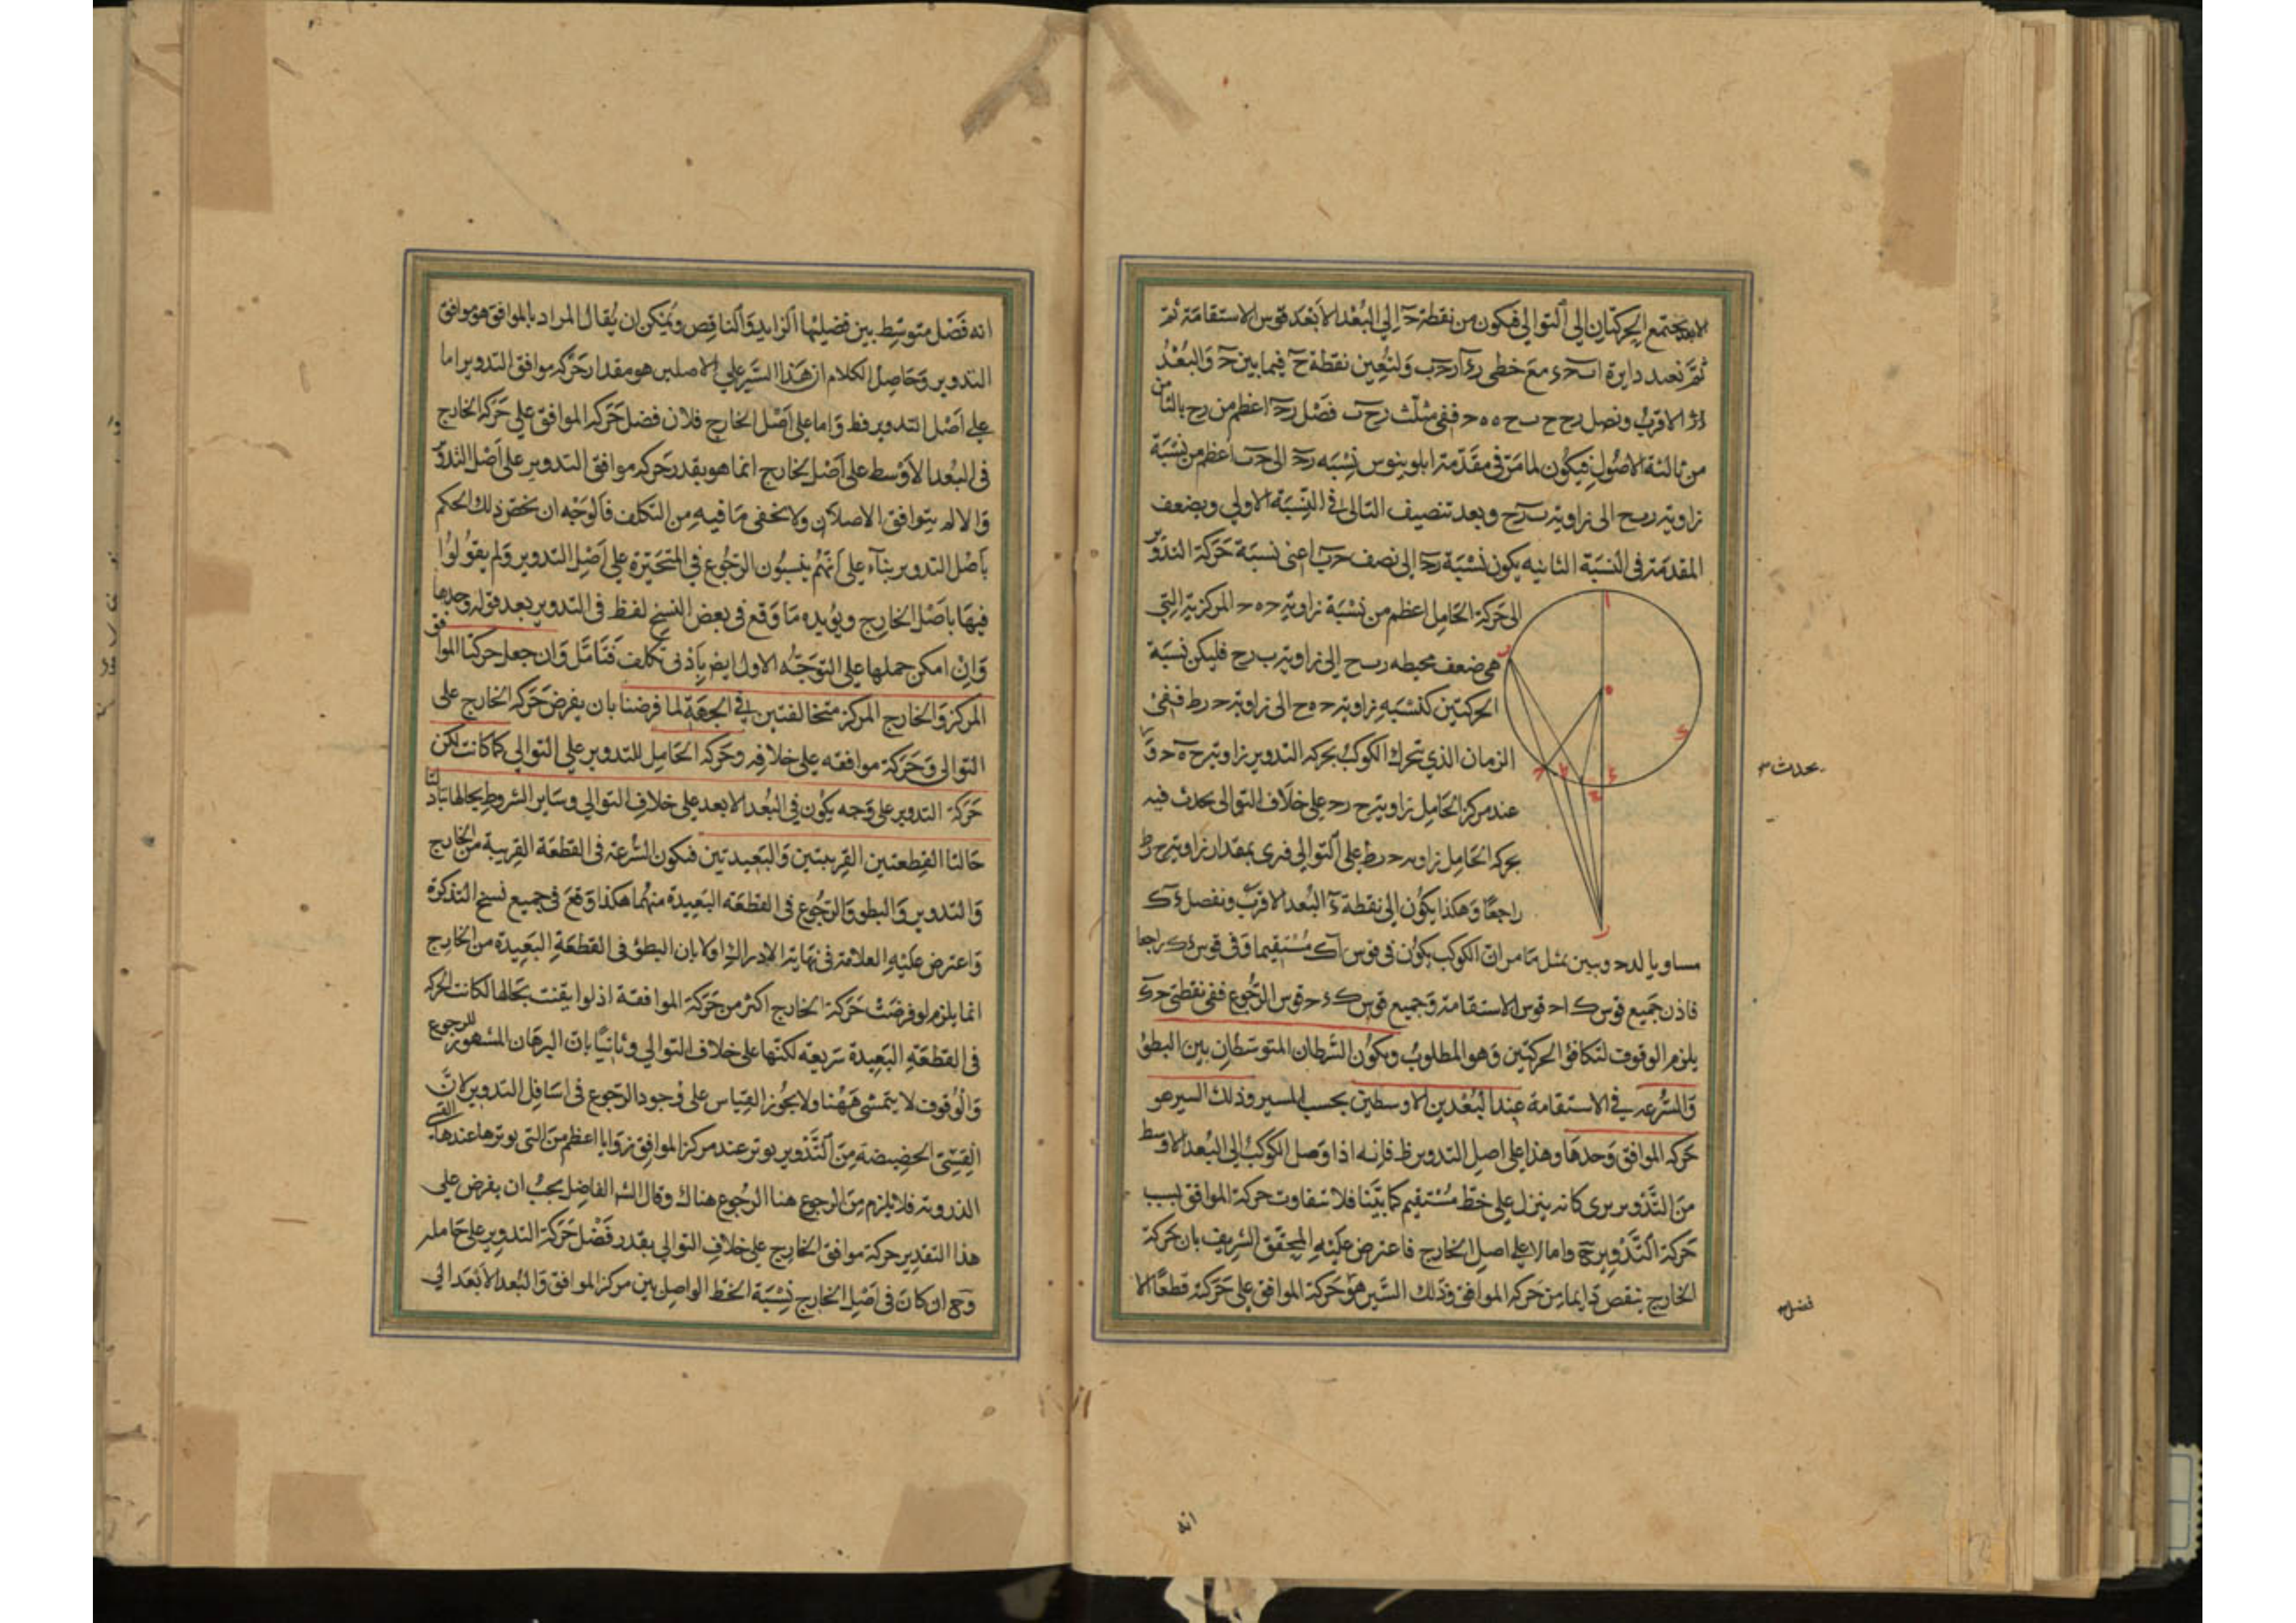 لا بعد يجتمع الحركتان الى التوالي فيكون من نقطة حَ الى البُعْد الأبعَد قوس الاستقامة ثم
ثمَّ نعيد دايرة ا ب ح د مع خطى ر ا ر ح ب ولنعين نقطة ح فيما بين حَ وَالبُعْدُ
الاقربُ ونصل ر ح ح ب ح ه ه ح ففى مثلث ر ح ب فضْل ر ح اعظم من ر ح بالثامن
من ثالثة الاصُولِ فيكُون لما مَرَّ فى مقَدّمة ابلونيوس نِسْبَة ر ح الى ح ب اعظم من نسْبَة
زاوية ر ب ح الى زاوية ب ر ح وبعد تنصيف التالى فى النِسْبَة الاولي وبضعف
المقدمَة فى النسَبَة الثانيه يكون نسْبَة ر ح الى نصف ح ب اعنى نسبَة حَركة التدوير
الى حَركة الحَامِل اعظم من نسْبَة زاوية ح ه ح المركزية التي
هى ضعف محيطه ر ب ح الى زاوية ب ر ح فليكن نسبَة
الحركتين كنسْبَةِ زاوية ح ه ح الى زاوية ح ر ط ففىْ
الزمان الذي تحرك الكوكبُ بحركة التدوير زاوية ح ه ح وَ
عند مركز الحَامِل زاوية ح ر ح على خلَاف التوالى يحدث فيه
بحركة الحَامِل زاوية ح ر ط على التوالي فيرى بمقدار زاوية ح ر ط
راجعًا وَهكذا يكُون الى نقطة ءَ البُعد الاقربُ ونفصل ء ك
مساويا لـ ء ح وبين بمثل مَا مر انّ الكوكب يكُون فى قوس ا ك مُسْتَقيما وَفى قوس ء ك راجعا
فاذن جَميع قوس ك ا ح قوس الاستقامة وَجميع قوس ك ء ح قوس الرجُوع ففى نقطتى ح ك
يلزم الوقوف لتكافؤ الحركتين وَهو المطلوبُ ويكُون الشرطان المتوسّطان بين البطؤ
وَالسُّرعه في الاستقامة عِندا لبُعْدين الاوسطين بحسب المسير وذلك السير هو
حَركة الموافق وَحدهَا وهذا على اصِل التدوير ظ فإنه اذا وَصل الكوكبُ الى البُعد الاوسط
مِنَ التَّدْوير يرى كانه ينزل على خطّ مُسْتقيم كما بيَّنا فلا تتفاوت حركة الموافق بسبب
حَركة التَّدْوير ح واما لا على اصِل الخارج فاعترض عَلَيْهِ المحقّق الشريف بان حركة
الخارج ينقص دَايما من حَركة الموافق وَذلك السَّير هوَ حَركة الموافق على حَركته قطعًا الا
يحدث
فضل
انه
انه فَضْل متوسِّط بين فضليْها الزايد وَالناقِص ويُمْكن ان يُقال المراد بالموافق هو موافق
التدوير وَحَاصِل الكلام ان هَذا السَّير على الاصلين هو مقدار حَركة موافق التدوير اما
على اَصْل التدوير فظ وَاما على اَصْل الخارج فلان فضل حَركة الموافق على حَركة الخارج
فى البُعد الأوْسَط على اَصْل الخارج انما هو بقدر حَركة موافق التدوير على اَصْل التدوير
وَالا لم يتوافق الاصلان ولا يخفى مَا فيهِ مِن التكلف فَالوَجْه ان يخصّ ذلك الحكم
باَصْل التدوير بنآء على اَنَّهُم ينسبُون الرجُوع فى المتحَيّرة على اَصْل التدوير وَلم يقولوا
فيهَا باصْل الخارج ويُؤيده مَا وَقع فى بعض النسخ لفظ فى التدوير بعد قوله وحدها
وَانْ امكن حملها على التوَجيْه الاول ايض بأدنى تكلف فتَامّل وَان جعل حركتا الموافق
المركز وَالخارج المركز متخالفتين في الجهَة لما فرضنا بان يفرض حَركة الخارج على
التوالى وَحَركة موافقه على خلافِه وحَركة الحَامِل للتدوير على التوالي كما كانت لكن
حَركة التدوير على وَجه يكُون فى البُعد الابعد على خلافِ التوالي وسَاير الشروط بحالها تبَادلتا
حَالتا القِطعتين القريبتين وَالبَعيدتين فيكون السُرعة فى القطعَة القريبة من الخارج
وَالتدوير وَالبطو وَالرجُوع فى القطعَة البَعيدة منهُما هكذا وَقعَ فى جميع نسخ التذكرة
وَاعترض عَليْهِ العلامة فى نهَاية الادراك اولا بان البطؤ فى القطعَة البَعيدة من الخارج
انما يلزم لو فرضَتْ حَركة الخارج اكثر من حَركة الموافقة اذ لو ابقيت بحَالها لكانت الحركة
فى القطعَة البَعيدة سَريعه لكنّها على خلاف التوالي وثانيًا بانّ البرهَان المشهُور للرجوع
وَالوُقوف لا يتمشى هَهُنا ولا يجُوز القيَاس على وُجود الرّجوع فى اسَافِل التدوير لانَّ
القِسِيّ الحَضيضة مِنَ التَّدْوير يوتر عند مركز الموافِق زوَايا اعظم مِنَ التى يوترها عندها القسى
الذروية فلا يلزم مِنَ الرجوع هنا الرجُوع هناك وقال الشه الفاضِل يجبُ ان يفرض على
هذا التقدير حركة موافق الخارج على خلافِ التوالي بقدر فَضْل حَركة التدوير على حَامله
وَح ان كان فى اَصْل الخارج نسْبَة الخط الواصِل بين مركز الموافق وَالبُعد الأبْعَد الى